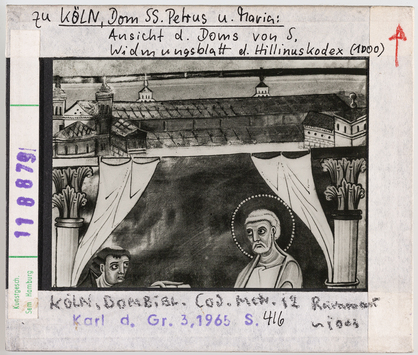 zu KÖLN, Dom SS. Petrus u. Maria:
Ansicht d. Doms von S,
Widmungsblatt d. Hillinuskodex (1000)
118879
Kunstgesch.
Sem. Hamburg
KÖLN, DOMBIBL. Cod. Metr. 12
Karl d. Gr. 3, 1965 S. 416